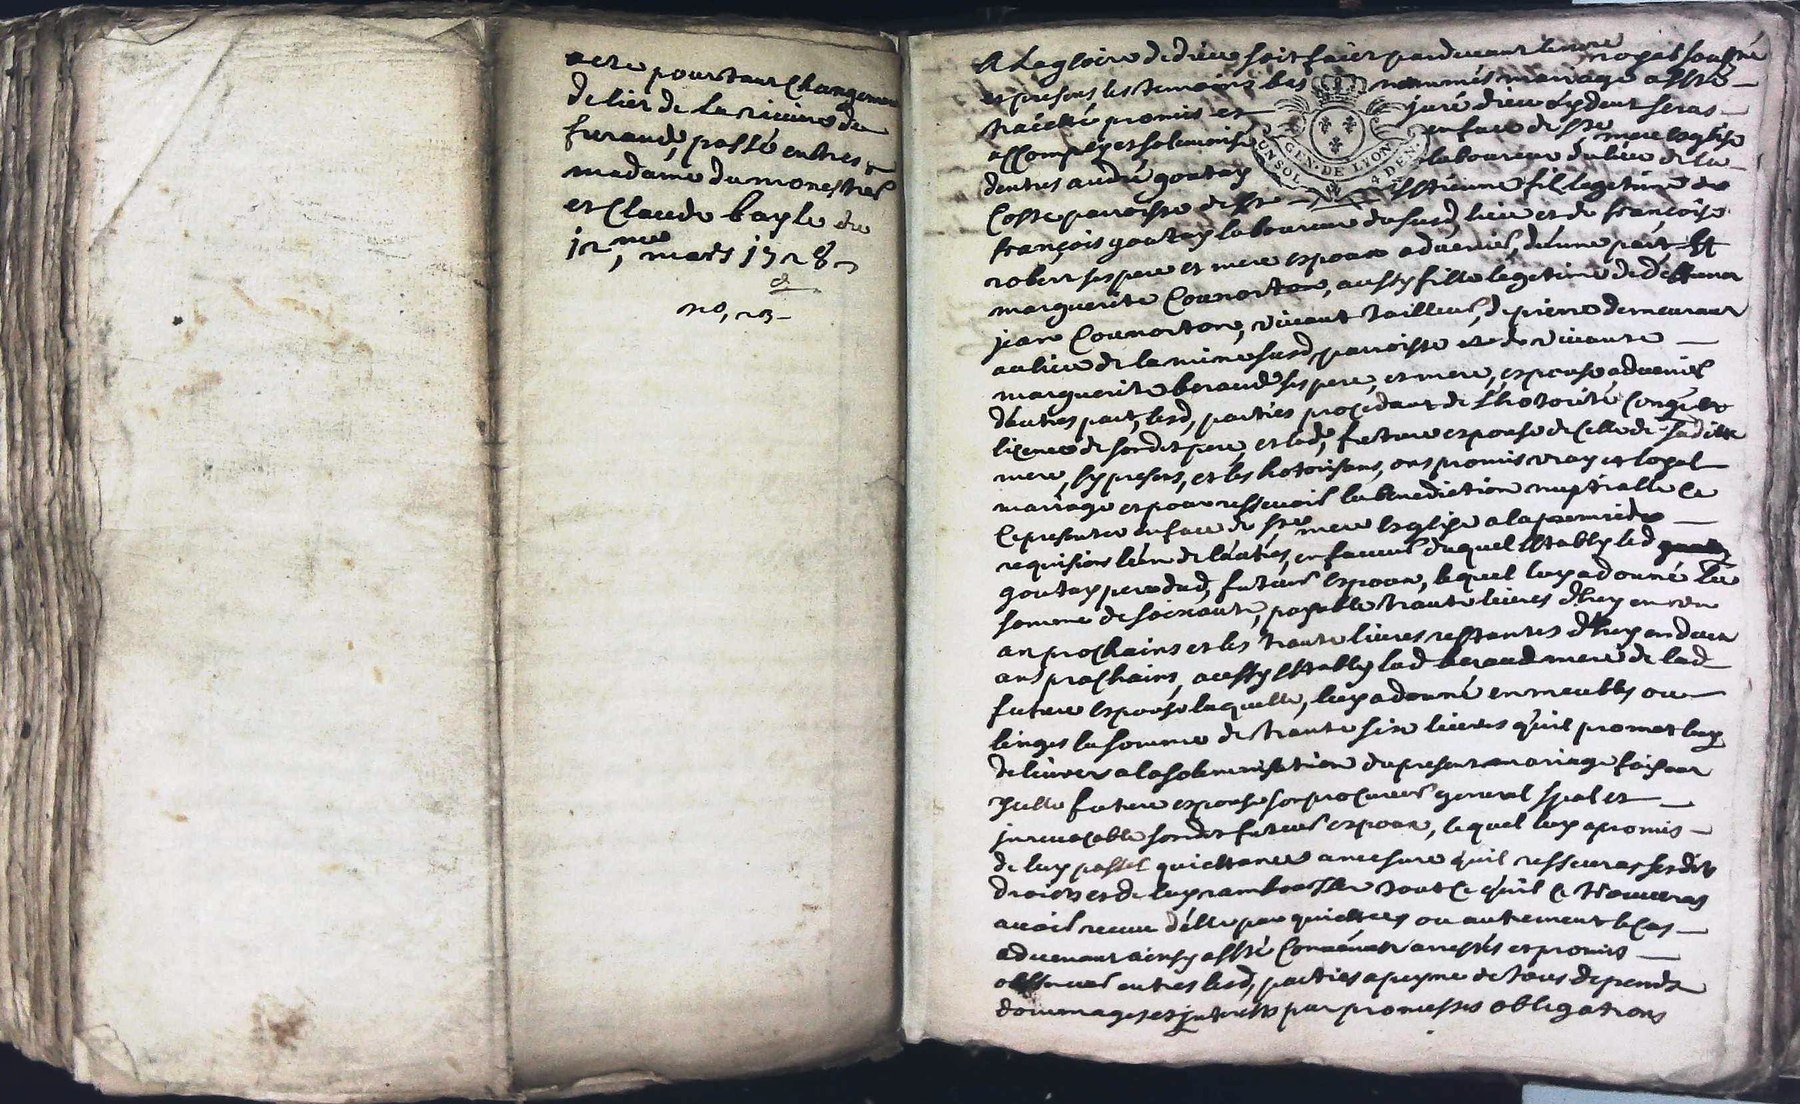 acte pourtant Changement
de lict de la riviere de
furand, passé entres
madame du monestier
et Claude bayle du
12me, mars 1728
no, 23
GEN. DE LYON
UN SOL 4 DEN.
A La gloire de dieu soit faict pardevant le nore royal soubsne
et presens les temoins bas nommés mariage a esté
traicté promis et juré dieu aydent seras
accomply et solemnisé en face de ste mere Esglize
dentres andré goutay laboureur du lieu de la
Coste parroisse de st Estienne fil legetime de
françois goutay laboureur dusd, lieu et de françoise
robert ses pere et mere espoux advenir, d'une part, Et
marguerite Cournorton, aussy fille legetime de deffunct
jean Cournorton, vivant tailleur, de pierre demeurant
au lieu de la mine susd, parroisse et de vivante
marguerite beraud ses pere, et mere, espouse advenir
d'autres part, lesd, parties procedant de l'hotorité Congé et
licence de sondit pere, et lad, future espouse de Celle de sadite
mere, sy presens, et les hotorisans, ons promis vray et loyal
mariage et pour ressevoir la benediction nuptialle Ce
Ce presenter en face de ste mere Esglize a la premiere
requision l'un de l'autres, en faveur duquel Estably led
goutay pere dud, futeur Espoux, lequel luy a donné la
somme de soixante, payable trante livres d'huy en un
an prochains et les trante livres restantes d'huy en deux
ans prochains, aussy Estably lad beraud mere de lad
future espouse laquelle, luy a donné en meubles ou
linges la somme de trante six livres qu'il promet luy
delivrer a la solemnisation du present mariage faisant
ycelle future espouse son procureur general spal et
jrrevocable sondit futeur espoux, lequel luy a promis
de luy passer quictance a mesure qu'il ressevras sesdits
droicts et de luy rambourser tout Ce qu'il Ce trouveras
avoir receu d'elle par quictces ou autrement le Cas
advenant ainsy a esté Convenu arrestés et promis
observer entres lesd, parties a peyne de tous depends
dommages et jnterests par promesses obligations